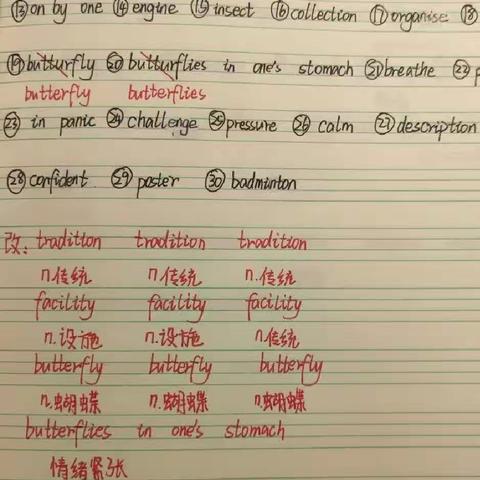 ⑬on by one ⑭engine ⑮insect ⑯collection ⑰organise ⑱
⑲butturfly ⑳butturflies in one's stomach ㉑breathe ㉒
butterfly butterflies
㉓ in panic ㉔challenge ㉕pressure ㉖ calm ㉗description
㉘confident ㉙poster ㉚ badminton
改: tradition tradition tradition
n.传统 n.传统 n.传统
facility facility facility
n.设施 n.设施 n.传统
butterfly butterfly butterfly
n.蝴蝶 n.蝴蝶 n.蝴蝶
butterflies in one's stomach
情绪紧张